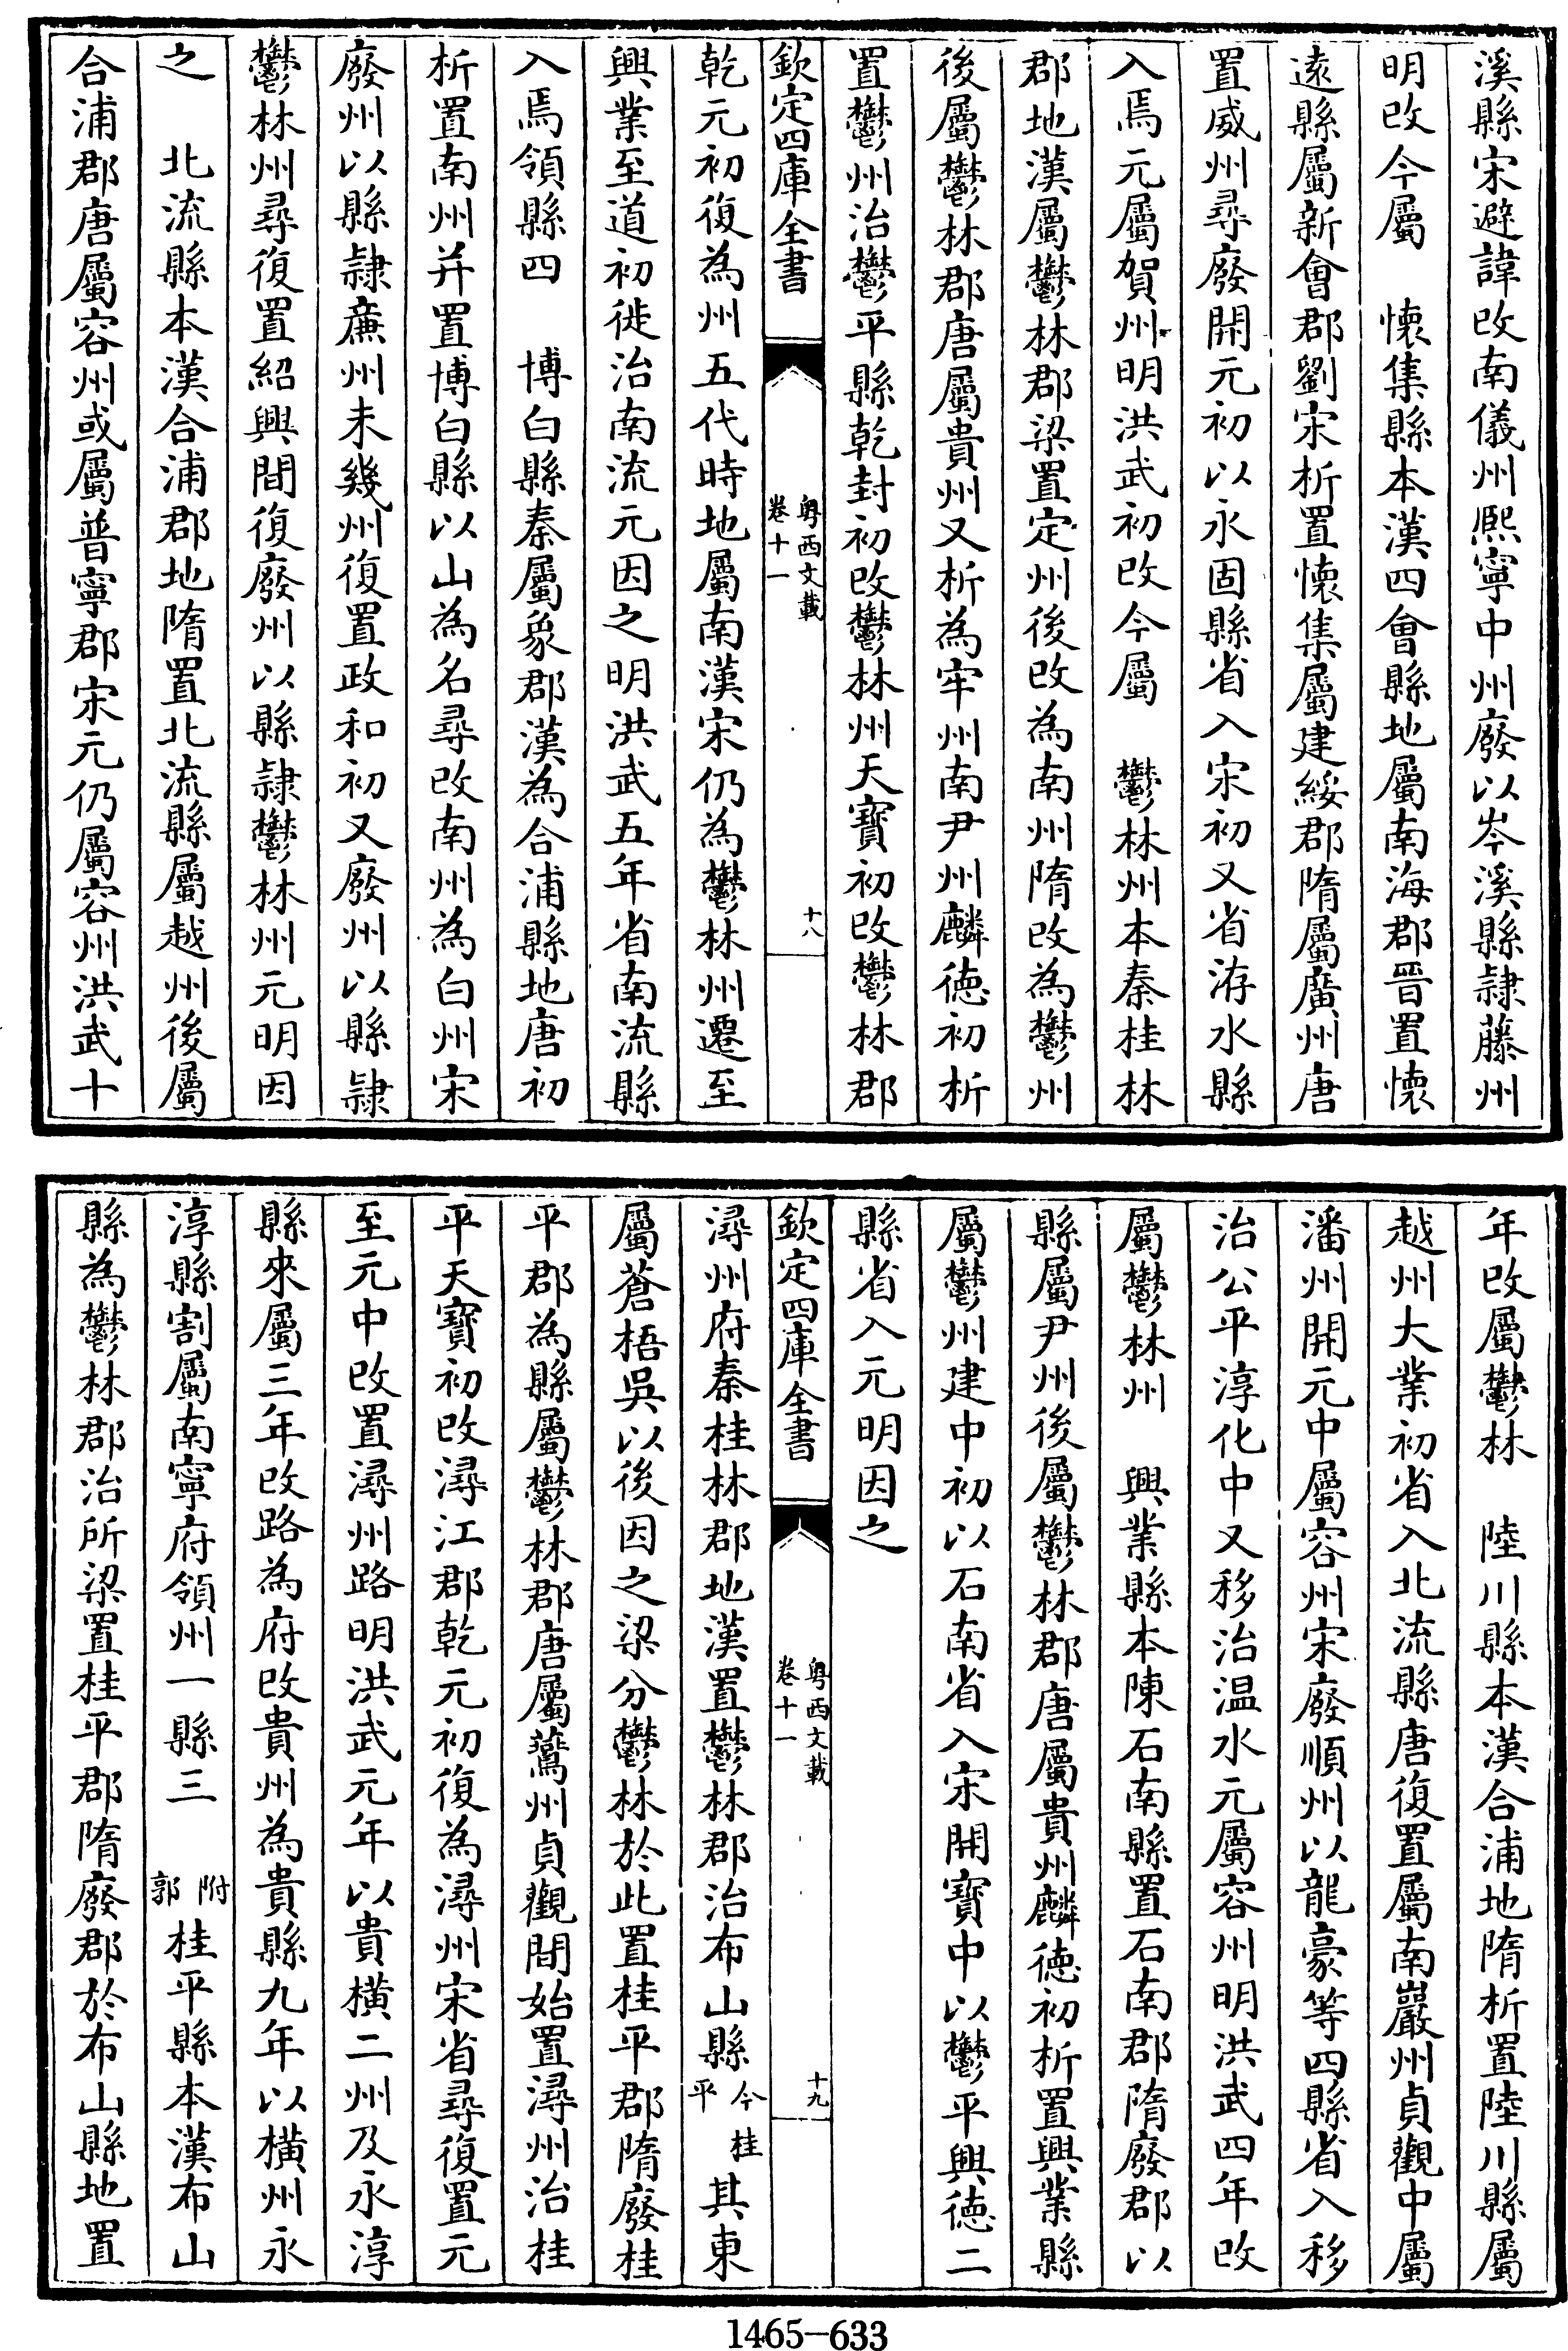 溪縣宋避諱改南儀州熈寧中州廢以岑溪縣隷藤州
明改今屬　懐集縣本漢四會縣地屬南海郡晉置懐
逺縣屬新會郡劉宋析置懐集屬建綏郡隋屬廣州唐
置威州尋廢開元初以永固縣省入宋初又省洊水縣
入焉元屬賀州明洪武初改今屬　鬱林州本秦桂林
郡地漢屬鬱林郡梁置定州後改為南州隋改為鬱州
後屬鬱林郡唐屬貴州又析為牢州南尹州麟徳初析
置鬱州治鬱平縣乾封初改鬱林州天寳初改鬱林郡
欽定四庫全書
粤西文載
卷十一
十八
乾元初復為州五代時地屬南漢宋仍為鬱林州遷至
興業至道初徙治南流元因之明洪武五年省南流縣
入焉領縣四　博白縣秦屬象郡漢為合浦縣地唐初
析置南州并置博白縣以山為名尋改南州為白州宋
廢州以縣隷㢘州未幾州復置政和初又廢州以縣隷
鬱林州尋復置紹興間復廢州以縣隷鬱林州元明因
之　北流縣本漢合浦郡地隋置北流縣屬越州後屬
合浦郡唐屬容州或屬普寧郡宋元仍屬容州洪武十
年改屬鬱林　陸川縣本漢合浦地隋析置陸川縣屬
越州大業初省入北流縣唐復置屬南巖州貞觀中屬
潘州開元中屬容州宋廢順州以龍豪等四縣省入移
治公平淳化中又移治温水元屬容州明洪武四年改
屬鬱林州　興業縣本陳石南縣置石南郡隋廢郡以
縣屬尹州後屬鬱林郡唐屬貴州麟徳初析置興業縣
屬鬱州建中初以石南省入宋開寳中以鬱平興徳二
縣省入元明因之
欽定四庫全書
粤西文載
卷十一
十九
潯州府秦桂林郡地漢置鬱林郡治布山縣今桂平其東
屬蒼梧吳以後因之梁分鬱林於此置桂平郡隋廢桂
平郡為縣屬鬱林郡唐屬鷰州貞觀間始置潯州治桂
平天寳初改潯江郡乾元初復為潯州宋省尋復置元
至元中改置潯州路明洪武元年以貴横二州及永淳
縣來屬三年改路為府改貴州為貴縣九年以横州永
淳縣割屬南寧府領州一縣三　附郭桂平縣本漢布山
縣為鬱林郡治所梁置桂平郡隋廢郡於布山縣地置
1465-633